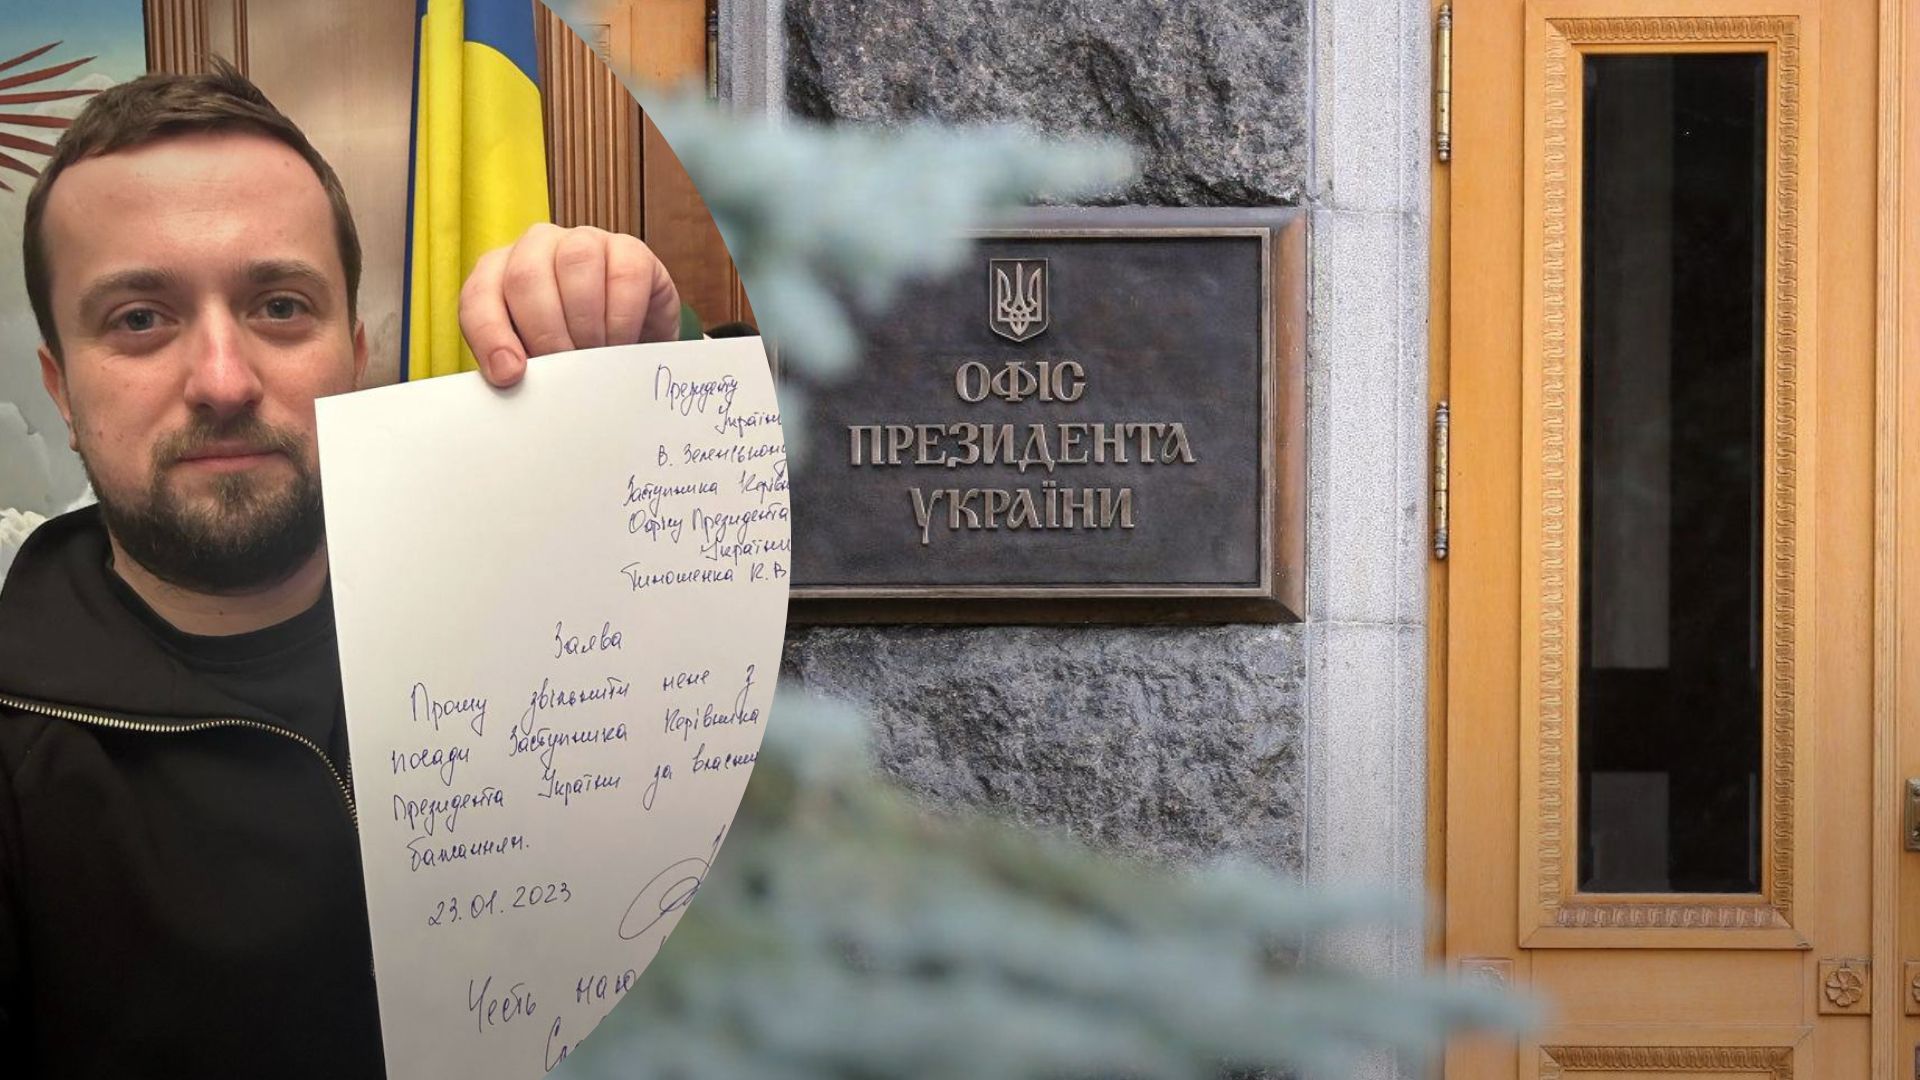 Президенту
України
В. Зеленському
Заступника Керівн
Офісу Президента
України
Тимошенка К. В
Заява
Прошу звільнити мене з
посади Заступника Керівника
Президента України за власним
бажанням.
23.01.2023
Честь маю
ОФІС
ПРЕЗИДЕНТА
УКРАЇНИ